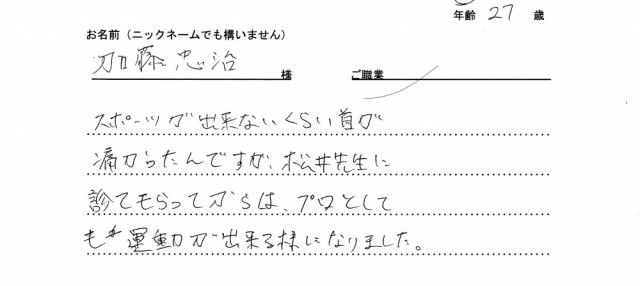 年齢 27 歳
お名前（ニックネームでも構いません）
加藤忠治 様 ご職業
スポーツが出来ないくらい首が
痛かったんですが、松井先生に
診てもらってからは、プロとして
も運動が出来る様になりました。